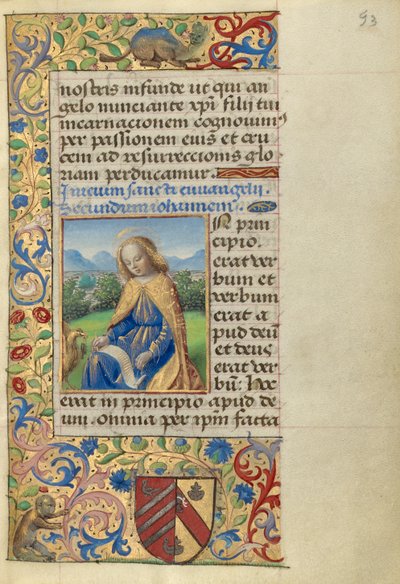 93
nostris infunde ut qui an
gelo nunciante xpi filii tui
incarnacionem cognovim
per passionem eius et cru
cem ad resurreccionis glo
riam perducamur.
Inicium sancti euvangelii
Secundum iohannem
N prin
cipio
erat ver
bum et
verbum
erat a
pud deū
et deus
erat ver
bū: hoc
erat in principio apud de
um. omnia per ipm facta